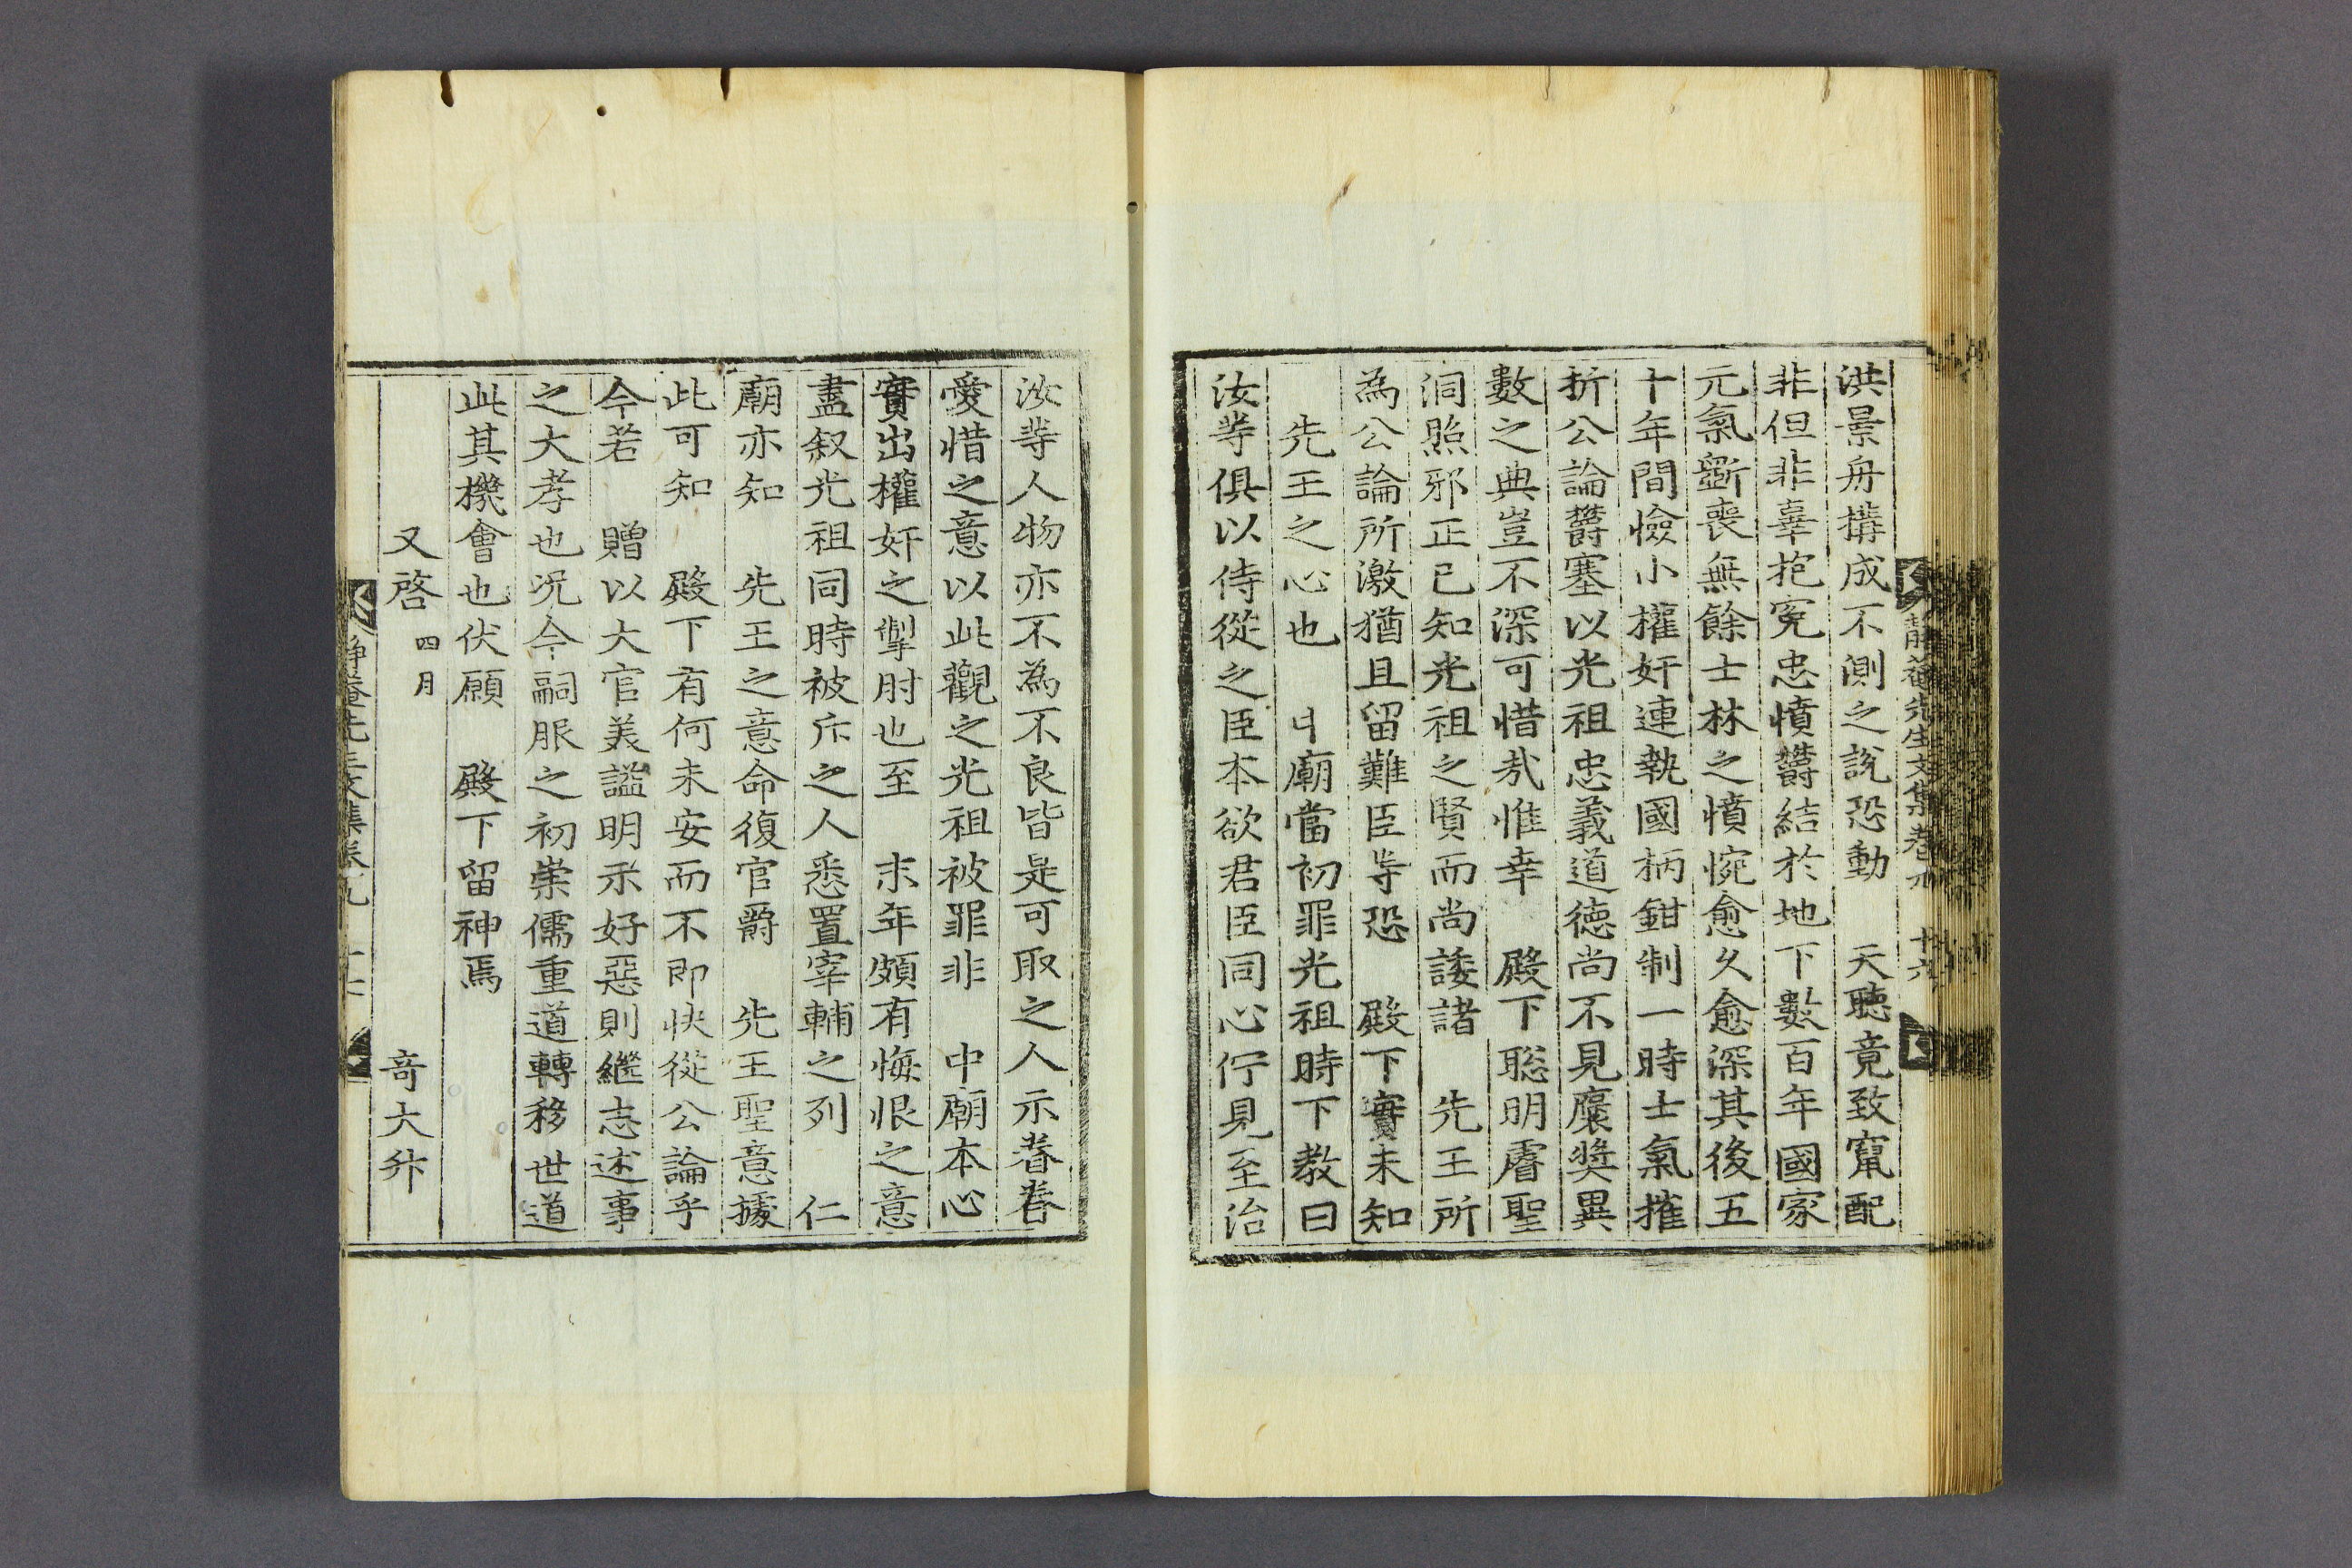 洪景舟搆成不測之說恐動　天聽竟致竄配
非但非辜抱寃忠憤欝結於地下數百年國家
元氣斲喪無餘士林之憤惋愈久愈深其後五
十年間憸小權奸連執國柄鉗制一時士氣摧
折公論欝塞以光祖忠義道德尚不見襃奬異
數之典豈不深可惜㢤惟幸　殿下聡明睿聖
洞照邪正已知光祖之賢而尚諉諸　先王所
為公論所激猶且留難臣等恐　殿下實未知
先王之心也　廟當初罪光祖時下教曰
汝等俱以侍從之臣本欲君臣同心佇見至治
汝等人物亦不為不良皆是可取之人示眷眷
愛惜之意以此觀之光祖被罪非　中廟本心
實出權奸之掣肘也至　末年頗有悔恨之意
盡叙光祖同時被斥之人悉置宰輔之列　仁
廟亦知　先王之意命復官爵　先王聖意據
此可知　殿下有何未安而不即快從公論乎
今若　贈以大官美謚明示好惡則繼志述事
之大孝也况今嗣服之初崇儒重道轉移世道
此其機會也伏願　殿下留神焉
又啓 四月　奇大升
靜菴先生文集卷 十六
靜菴先生文集卷九